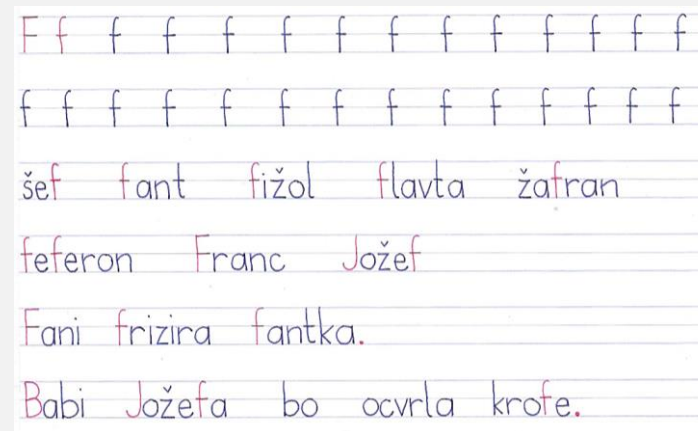 F f f f f f f f f f f f f f
f f f f f f f f f f f f f f
šef fant fižol flavta žafran
feferon Franc Jožef
Fani frizira fantka.
Babi Jožefa bo ocvrla krofe.